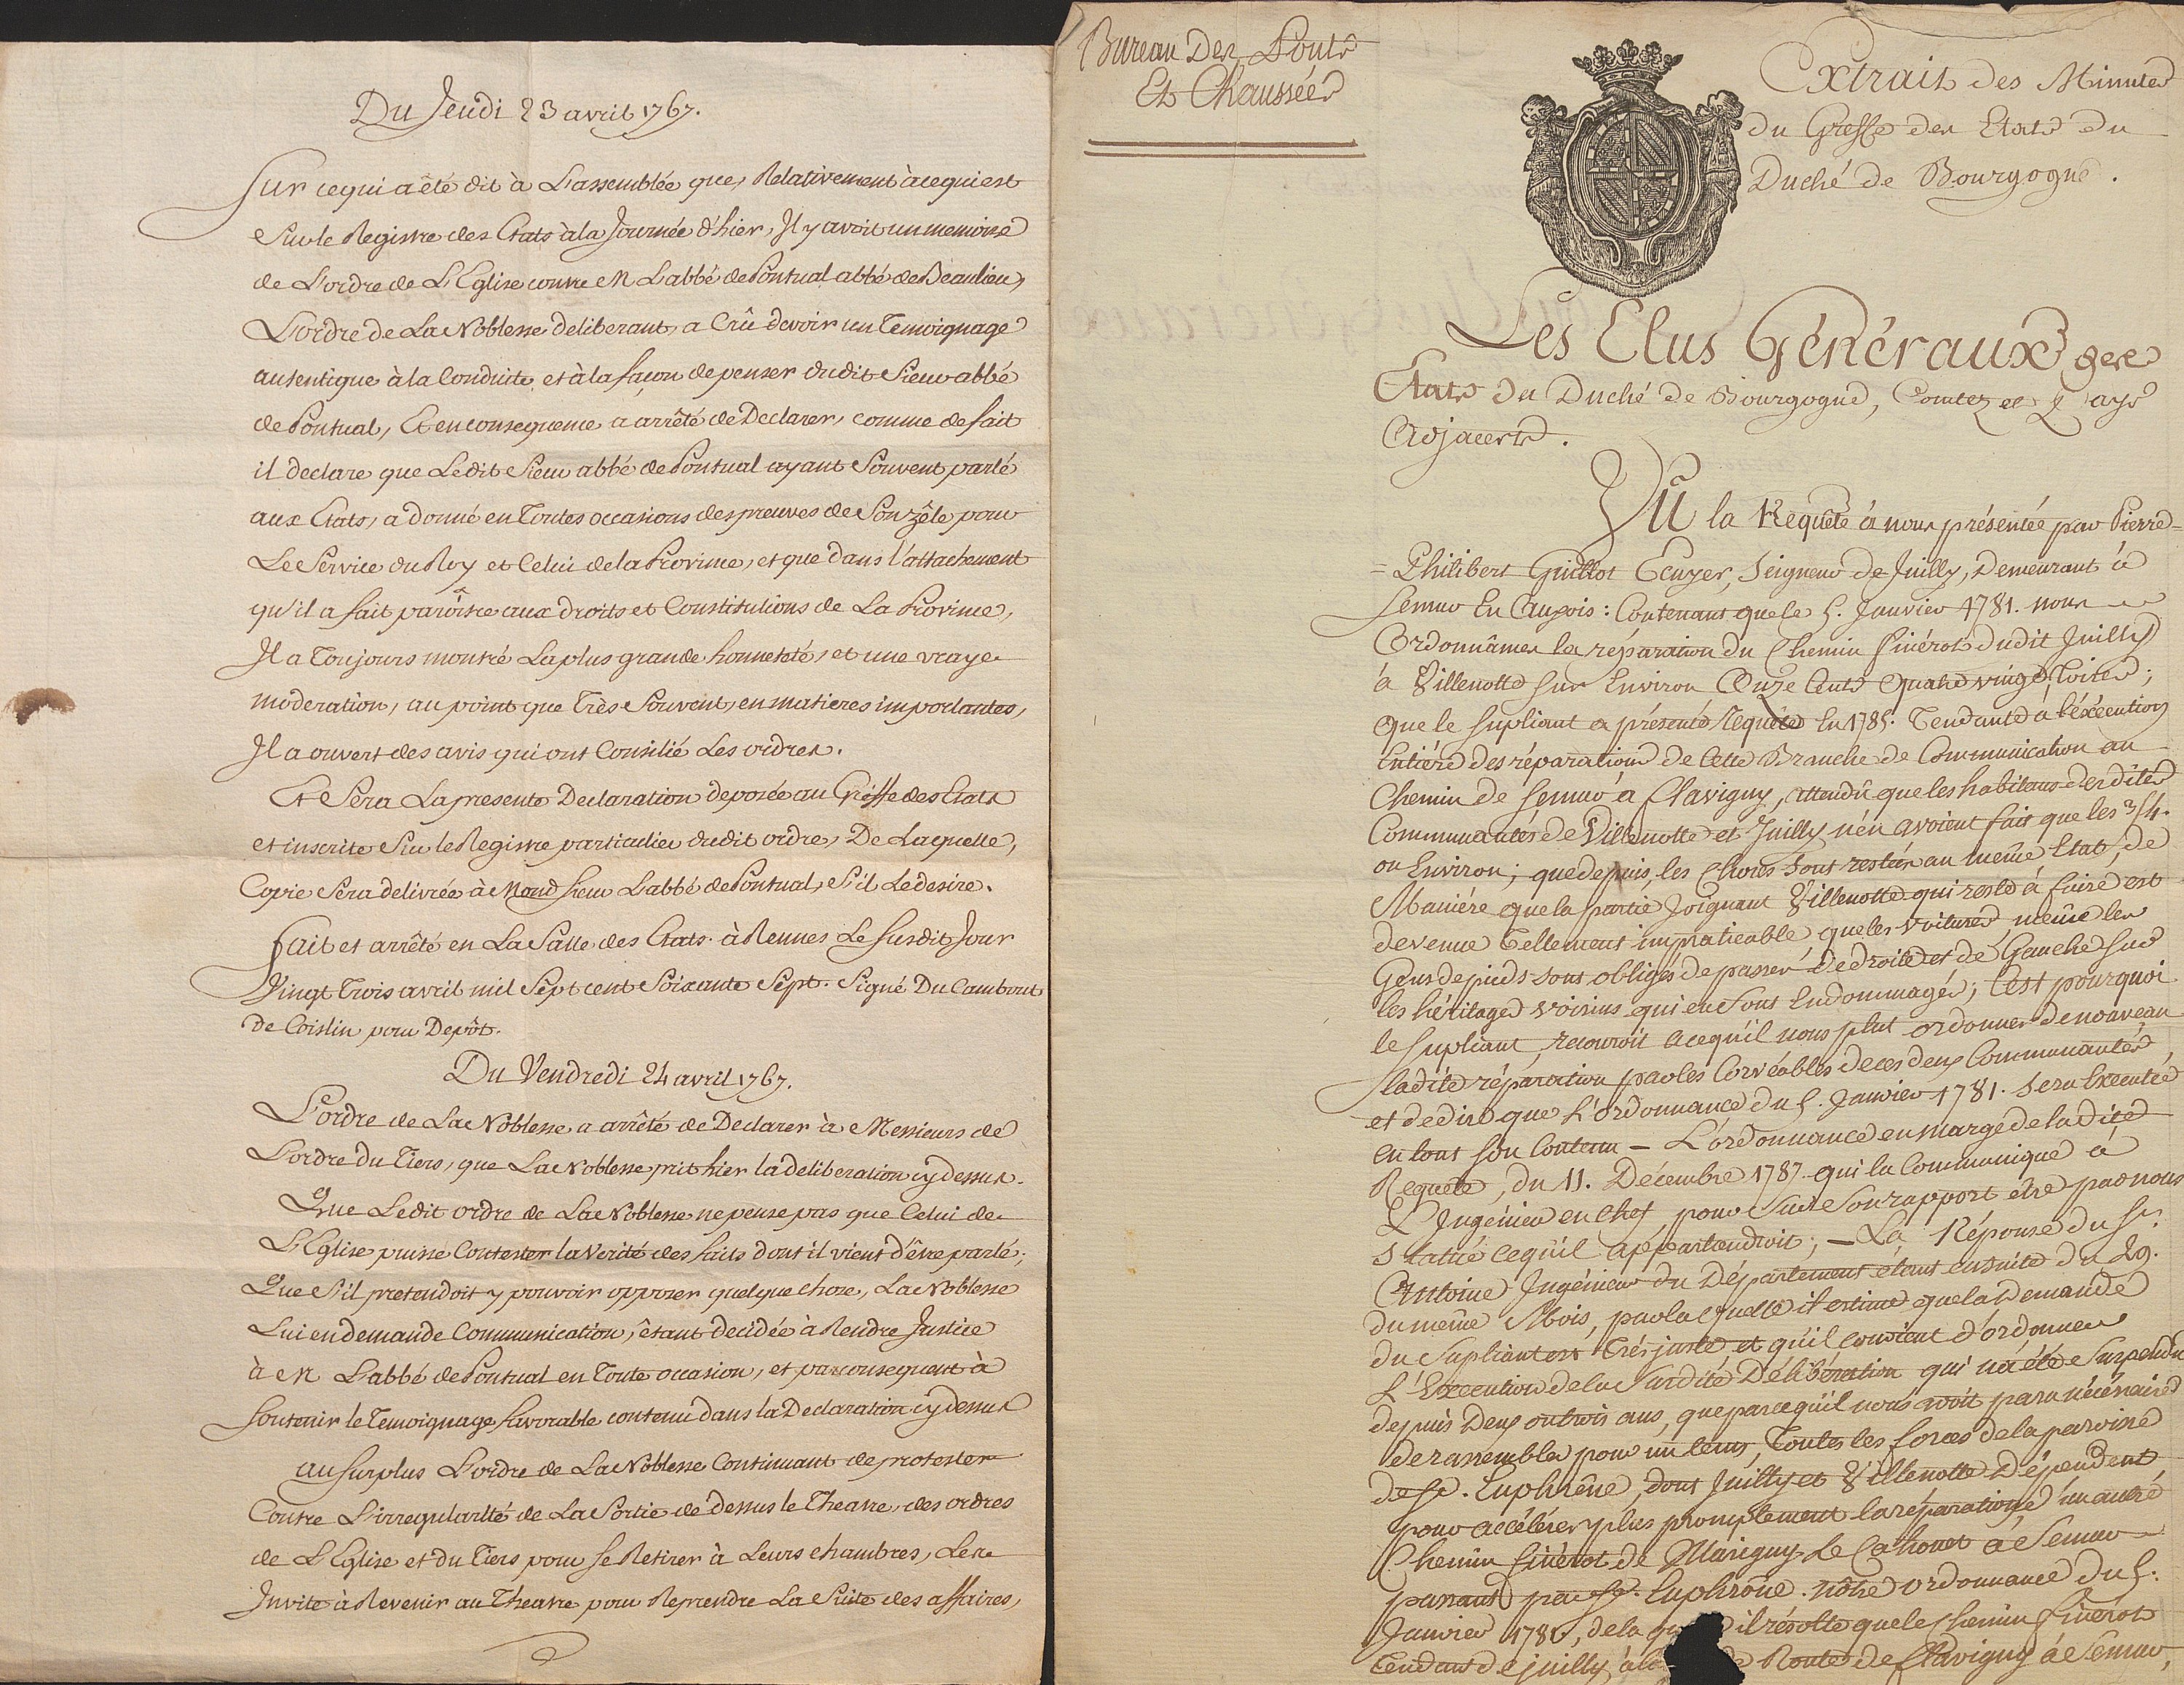 Du Jeudi 23 avril 1767.
Sur ce qui a été dit à L'assemblée que, Relativement à ce qui est
Sur le Registre des Etats à la Journée d'hier, Il y avoit un memoire
de L'ordre de L'Eglise contre M L'abbé de Pontual abbé de Beaulieu,
L'ordre de La Noblesse deliberant, a Crû devoir un Temoignage
autentique à la Conduite, et à la façon de penser dudit Sieur abbé
de Pontual, Et en consequence a arrêté de Declarer, comme de fait
il declare que Ledit Sieur abbé de Pontual ayant Souvent parlé
aux Etats, a donné en Toutes occasions des preuves de Son zêle pour
Le Service du Roy et Celui de la Province, et que dans l'attachement
qu'il a fait paroître aux droits et Constitutions de La Province,
Il a Toujours montré La plus grande honneteté, et une vraye
moderation, au point que Très Souvent, en matieres importantes,
Il a ouvert des avis qui ont Consilié Les ordres.
Et Sera La presente Declaration deposée au Greffe des Etats
et inscrite Sur le Registre particulier dudit ordre, De Laquelle,
Copie Sera delivrée à Mond sieur L'abbé de Pontual, S'il Le desire.
Fait et arrêté en La Salle des Etats à Rennes Le Susdit Jour
Vingt Trois avril mil Sept cent Soixante Sept. Signé Du Cambout
de Coislin pour Depôt.
Du Vendredi 24 avril 1767.
L'ordre de La Noblesse a arrêté de Declarer à Messieurs de
L'ordre du Tiers, que La Noblesse prit hier la deliberation cy dessus.
Que Ledit ordre de La Noblesse ne pense pas que Celui de
L'Eglise puisse Contester la Verité des faits dont il vient d'être parlé;
Que S'il pretendoit y pouvoir opposer quelque chose, La Noblesse
Lui en demande Communication, êtant decidée à Rendre Justice
à M L'abbé de Pontual en Toute occasion, et par consequent à
Soutenir le Temoignage favorable contenu dans la Declaration cy dessus
au surplus L'ordre de La Noblesse Continuant de protester
Contre L'irregularité de La Sortie de dessus le Theatre, des ordres
de L'Eglise et du Tiers pour se Retirer à Leurs chambres, Les
Invite à Revenir au Theatre pour Reprendre La Suite des affaires,
Bureau Des Ponts
Et Chaussées
Extrait des Minutes
du Greffe des Etats du
Duché de Bourgogne.
Les Elus Généraux des
Etats du Duché de Bourgogne, Comtez et Pays
Adjacents.
Vû la Requête à nous présentée par Pierre=
=Philibert Guillot Ecuyer, Seigneur de Juilly, Demeurant à
Semur En Auxois: Contenant que le 5. Janvier 1781. nous
Ordonnâmes la réparation du Chemin finérot dudit Juilly
à Villenotte sur Environ Onze Cents quatre vingt Toises;
que le Supliant a présenté Requête En 1785. Tendante à l'éxécution
Entiére des réparations de Cette Branche de Communication au
Chemin de Semur à Flavigny, attendû que les habitans desdites
Communautés de Villenotte et Juilly n'en avoient fait que les 3/4.
ou Environ; que depuis, les Choses Sont restées au même Etat, de
Maniére que la partie Joignant Villenotte qui reste à faire est
devenue Tellement impraticable, que les Voitures, même les
Gens de pieds sont obligés de passer de droite et de Gauche sur
les héritages voisins qui en Sont Endommagés; C'est pourquoi
le Supliant, recouroit à ce qu'il nous plut ordonner de nouveau
ladite réparation par les Corvéables de ces deux Communautés
et de dire que L'ordonnance du 5. Janvier 1781. Sera Executée
en tout son Contenu — L'ordonnance en marge de ladite
Requete, du 11. Décembre 1787. qui la Communique à
L'Ingénieur en Chef, pour Sur Son rapport etre par nous
Statué ce qu'il appartiendroit; — La Réponse du Sr.
Antoine Ingénieur du Département étant ensuite du 29.
du même Mois, par laquelle il estime que la Demande
du Supliant est très juste et qu'il convient d'ordonner
L'Execution de la Susdite Délibération qui n'a été Suspendue
depuis Deux ou trois ans, que parce qu'il nous avoit paru nécéssaire
de rassembler pour un tems, Toutes les forces de la paroisse
de Ste. Euphrône, dont Juilly et Villenotte Dépendent,
pour accélérer plus promptement la réparation d'un autre
Chemin finérot de Marigny Le Cahouet à Semur
passant par Ste. Euphrone. nôtre ordonnance du 5.
Janvier 1781, de la il résulte que le Chemin finérot
tendant de Juilly à la Route de Flavigny à Semur,